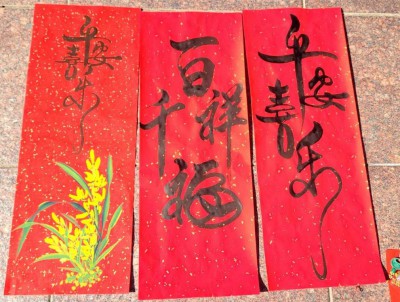 平安喜乐
百祥千福
平安喜乐